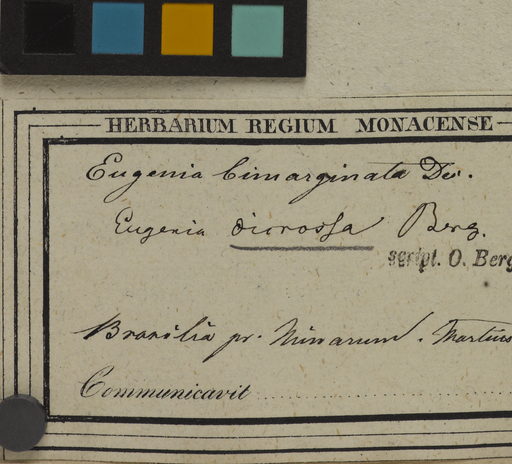 HERBARIUM REGIUM MONACENSE
Eugenia bimarginata Dec.
Eugenia dicrossa Berg.
script. O. Berg
Brasilia pr. Minarum. Martius
Communicavit